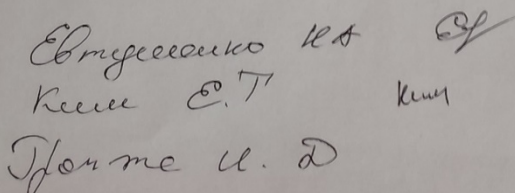 Евтушенко И А
Ким Е.Т Ким
И. Д